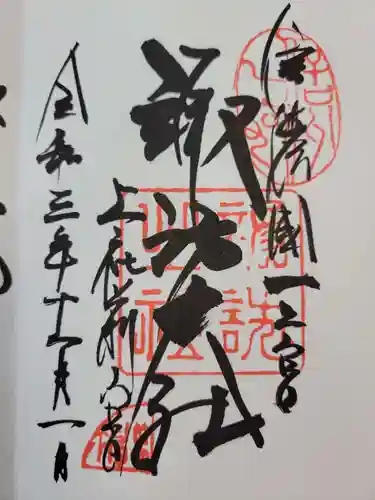 信濃國一之宮
諏訪大社
上社前宮
令和三年十二月一日